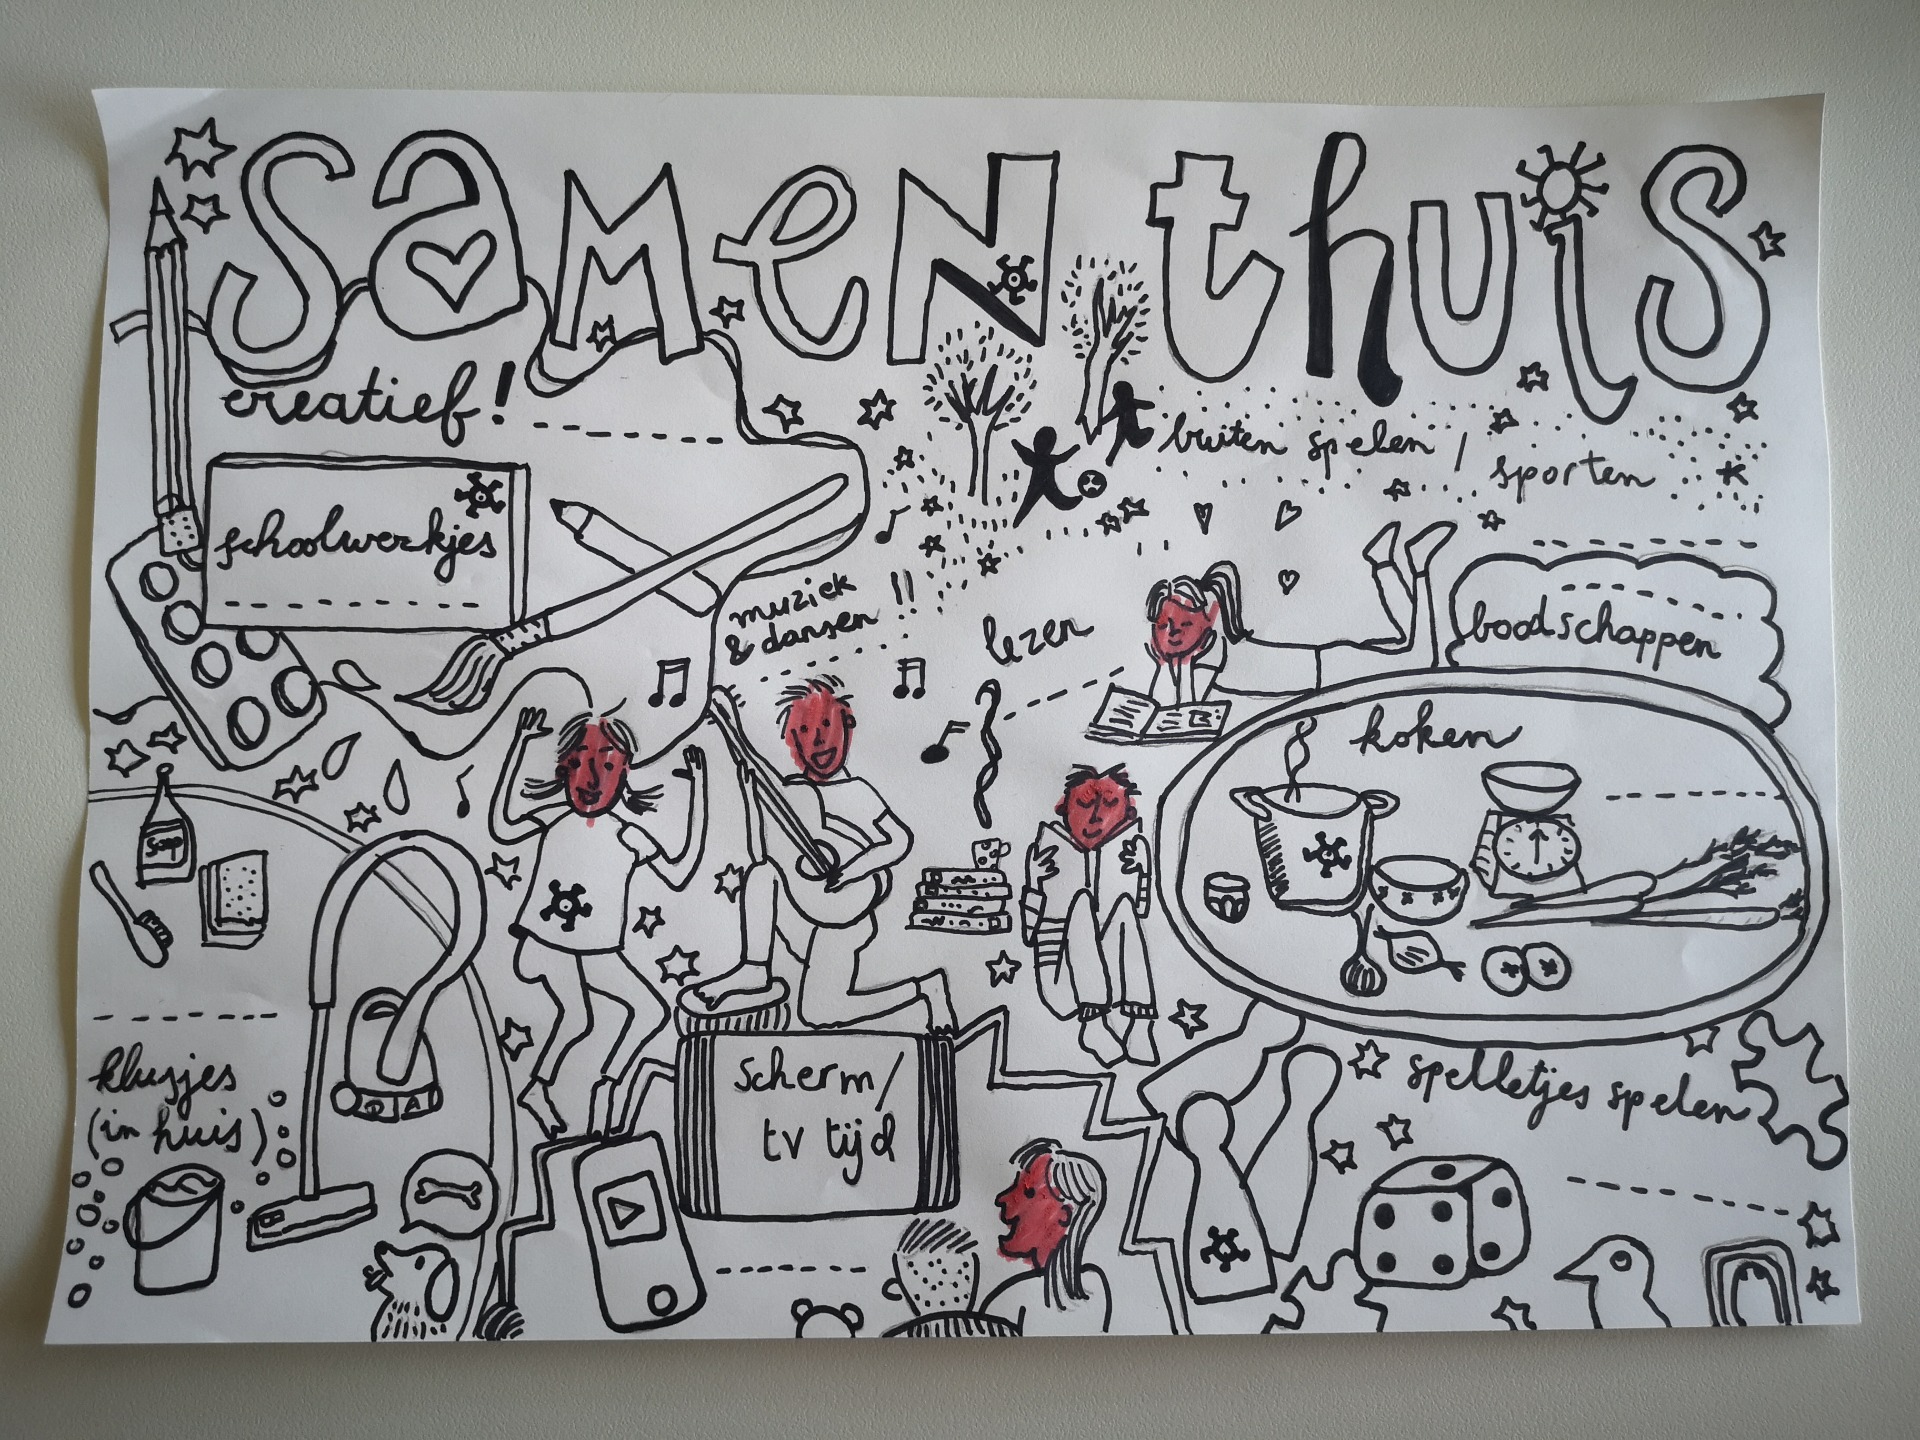 samen thuis
creatief!
buiten spelen /
sporten
schoolwerkjes
muziek
& dansen !!
lezen
boodschappen
koken
soap
klusjes
(in huis)
scherm/
tv tijd
spelletjes spelen